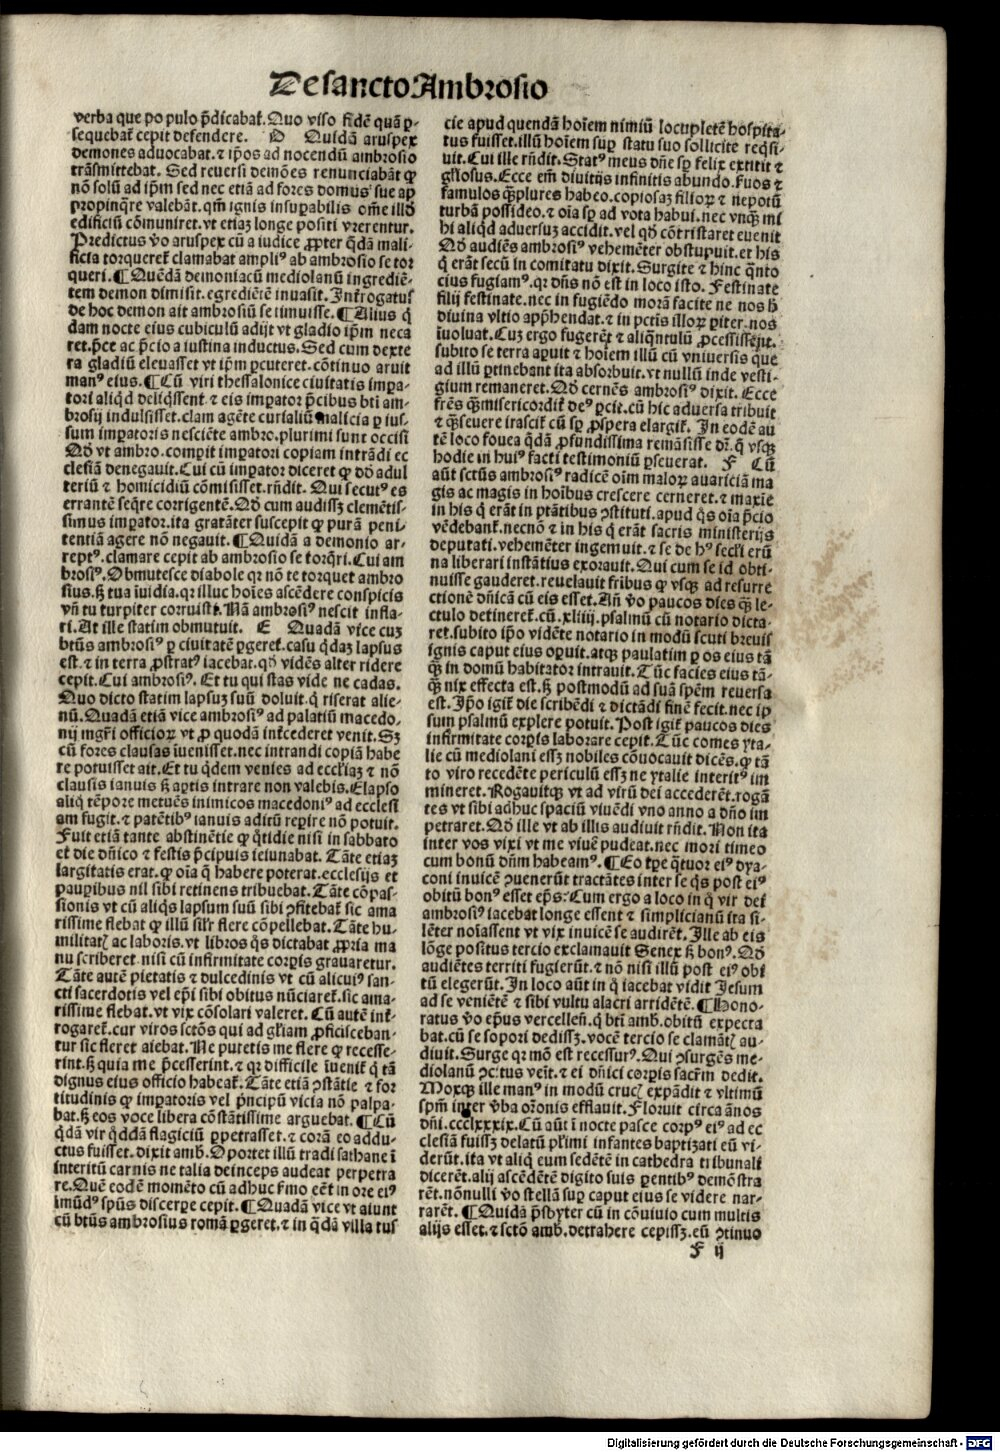 De sancto Ambrosio
verba que populo p̄dicabat̉. Quo viso fidē quā ꝑ-
sequebat̉ cepit defendere. D Quidā aruspex
demones aduocabat. ⁊ ip̄os ad nocendū ambrosio
trāsmittebat. Sed reuersi demōes renunciabāt ꝙ
nō solū ad ip̄m sed nec etiā ad fores domus sue ap
propinq̄re valebāt. qm̄ ignis insuꝑabilis om̄e illd̄
edificiū cōmuniret. vt etiaꝫ longe positi vrerentur.
Predictus v̄o aruspex cū a iudice ꝓpter q̄dā mali-
ficia torqueret̉ clamabat ampliꝰ ab ambrosio se tor
queri. ¶ Quēdā demoniacū mediolanū ingrediē-
tem demon dimisit. egrediētē inuasit. Int̉rogatus
de hoc demon ait ambrosiū se timuisse. ¶ Alius q̄
dam nocte eius cubiculū adijt vt gladio ip̄m neca
ret. p̄ce ac p̄cio a iustina inductus. Sed cum dexte
ra gladiū eleuasset vt ip̄m ꝑcuteret. cōtinuo aruit
manꝰ eius. ¶ Cū viri thessalonice ciuitatis imꝑa-
tori aliqd̄ deliq̄ssent. ⁊ eis imꝑator p̄cibus bt̄i am-
brosij indulsisset. clam agēte curialiū malicia ꝑ ius-
sum imꝑatoris nesciēte ambro. plurimi sunt occisi
Qd̄ vt ambro. comꝑit imꝑatori copiam intrādi ec
clesiā denegauit. Cui cū imꝑator diceret ꝙ dd̄ adul
teriū ⁊ homicidiū cōmisisset. rn̄dit. Qui secutꝰ es
errantē seq̄re corrigentē. Qd̄ cum audissꝫ clemētis-
simus imꝑator. ita gratāter suscepit ꝙ purā peni-
tentiā agere nō negauit. ¶ Quidā a demonio ar-
reptꝰ. clamare cepit ab ambrosio se torq̄ri. Cui am
brosiꝰ. Obmutesce diabole qr nō te torquet ambro
sius. sꝫ tua īuidia. qr illuc hoīes ascēdere conspicis
vn̄ tu turpiter corruisti. Nā ambrosiꝰ nescit infla-
ri. At ille statim obmutuit. E Quadā vice cuꝫ
bt̄us ambrosiꝰ ꝑ ciuitatē ꝑgeret. casu q̄daꝫ lapsus
est. ⁊ in terra ꝓstratꝰ iacebat. qd̄ vidēs alter ridere
cepit. Cui ambrosiꝰ. Et tu qui stas vide ne cadas.
Quo dicto statim lapsuꝫ suū doluit. q̄ riserat alie-
nū. Quadā etiā vice ambrosiꝰ ad palatiū macedo-
nij mgr̄i officioꝝ vt ꝓ quodā int̉cederet venit. Sꝫ
cū fores clausas īuenisset. nec intrandi copiā habe
re potuisset ait. Et tu q̄dem venies ad eccl̄iaꝫ ⁊ nō
clausis ianuis sꝫ aꝑtis intrare non valebis. Elapso
aliq̄ tēpore metuēs inimicos macedoniꝰ ad ecclesi
am fugit. ⁊ patētibꝰ ianuis aditū reꝑire nō potuit.
Fuit etiā tante abstinētie ꝙ q̄tidie nisi in sabbato
et die dn̄ico ⁊ festis p̄cipuis ieiunabat. Tāte etiaꝫ
largitatis erat. ꝙ oīa q̄ habere poterat. ecclesijs et
pauꝑibus nil sibi retinens tribuebat. Tāte cōpas-
sionis vt cū aliq̄s lapsum suū sibi ꝯfitebat̉ sic ama
rissime flebat ꝙ illū sil̄r flere cōpellebat. Tāte hu-
militatꝭ ac laboris. vt libros q̄s dictabat ꝓpria ma
nu scriberet. nisi cū infirmitate corꝑis grauaretur.
Tāte autē pietatis ⁊ dulcedinis vt cū alicuiꝰ san-
cti sacerdotis vel ep̄i sibi obitus nūciaret̉. sic ama-
rissime flebat. vt vix cōsolari valeret. Cū autē int̉-
rogaret̉. cur viros sctōs qui ad gl̄iam ꝓficisceban-
tur sic fleret aiebat. Ne putetis me flere ꝙ recesse-
rint. sꝫ quia me p̄cesserint. ⁊ qr difficile īuenit̉ q̄ tā
dignus eius officio habeat̉. Tāte etiā ꝯstātie ⁊ for
titudinis ꝙ imꝑatoris vel p̄ncipū vicia nō palpa-
bat. sꝫ eos voce libera cōstātissime arguebat. ¶ Cū
q̄dā vir q̄ddā flagiciū ꝑpetrasset. ⁊ corā eo addu-
ctus fuisset. dixit amb. Oportet illū tradi sathane ī
interitū carnis ne talia deinceps audeat perpetra
re. Quē eodē momēto cū adhuc ẜmo eēt in ore eiꝰ
īmūdꝰ spūs discerꝑe cepit. ¶ Quadā vice vt aiunt
cū bt̄us ambrosius romā ꝑgeret. ⁊ in q̄dā villa tus
cie apud quendā hoīem nimiū locupletē hospita-
tus fuisset. illū hoīem suꝑ statu suo sollicite reqsi-
uit. Cui ille rn̄dit. Statꝰ meus dn̄e sꝑ felix extitit ⁊
gl̄osus. Ecce em̄ diuitijs infinitis abundo. ẜuos ⁊
famulos q̄ꝫplures habeo. copiosaꝫ filioꝝ ⁊ nepotū
turbā possideo. ⁊ oīa sꝑ ad vota habui. nec vnq̄ꝫ mi
hi aliqd̄ aduersuꝫ accidit. vel qd̄ cōtristaret euenit
Qd̄ audiēs ambrosiꝰ vehemēter obstupuit. et his
q̄ erāt secū in comitatu dixit. Surgite ⁊ hinc q̄nto
cius fugiamꝰ. qr dn̄s nō est in loco isto. Festinate
filij festinate. nec in fugiēdo morā facite ne nos h̄
diuina vltio apprehendat. ⁊ in pctīs illoꝝ ꝑiter. nos
īuoluat. Cuꝫ ergo fugerēt ⁊ aliq̄ntulū ꝓcessissent.
subito se terra aꝑuit ⁊ hoīem illū cū vniuersis que
ad illū ꝑtinebant ita absorbuit. vt nullū inde vesti-
gium remaneret. Qd̄ cernēs ambrosiꝰ dixit. Ecce
fr̄es q̄ꝫ misericordit̉ deꝰ ꝑcit. cū hic aduersa tribuit
⁊ q̄ꝫ seuere irascit̉ cū sꝑ ꝓspera elargit̉. In eodē au
tē loco fouea q̄dā ꝓfundissima remāsisse dr̄. q̄ vsqꝫ
hodie in huiꝰ facti testimoniū ꝑseuerat. F Cū
aūt sctūs ambrosiꝰ radicē oīm maloꝝ auariciā ma
gis ac magis in hoībus crescere cerneret. ⁊ maxīe
in his q̄ erāt in ptātibus ꝯstituti. apud q̄s oīa p̄cio
vēdebant̉. necnō ⁊ in his q̄ erāt sacris ministerijs
deputati. vehemēter ingemuit. ⁊ se de hꝰ secl̄i eru
na liberari instātius exorauit. Qui cum se id obti-
nuisse gauderet. reuelauit fribus ꝙ vsqꝫ ad resurre
ctionē dn̄icā cū eis esset. An̄ v̄o paucos dies q̄ꝫ le-
ctulo detineret̉. cū. xliiij. psalmū cū notario dicta-
ret. subito ip̄o vidēte notario in modū scuti breuis
ignis caput eius oꝑuit. atqꝫ paulatim ꝑ os eius tā
q̄ꝫ in domū habitator intrauit. Tūc facies eius tā-
q̄ꝫ nix effecta est. sꝫ postmodū ad suā spēm reuersa
est. Ip̄o igit̉ die scribēdi ⁊ dictādi finē fecit. nec ip
sum psalmū explere potuit. Post igit̉ paucos dies
infirmitate corꝑis laborare cepit. Tūc comes yta-
lie cū mediolani essꝫ nobiles cōuocauit dicēs. ꝙ tā
to viro recedēte periculū essꝫ ne ytalie interitꝰ im
mineret. Rogauitqꝫ vt ad virū dei accederēt. rogā
tes vt sibi adhuc spaciū viuēdi vno anno a dn̄o im
petraret. Qd̄ ille vt ab illis audiuit rn̄dit. Non ita
inter vos vixi vt me viuē pudeat. nec mori timeo
cum bonū dn̄m habeamꝰ. ¶ Eo tꝑe q̄tuor eiꝰ dya-
coni inuicē ꝯuenerūt tractātes inter se q̄s post eiꝰ
obitū bonꝰ esset ep̄s. Cum ergo a loco in q̄ vir dei
ambrosiꝰ iacebat longe essent ⁊ simplicianū ita si-
lēter noīassent vt vix inuicē se audirēt. Ille ab eis
lōge positus tercio exclamauit Senex sꝫ bonꝰ. Qd̄
audiētes territi fugierūt. ⁊ nō nisi illū post eiꝰ obi
tū elegerūt. In loco aūt in q̄ iacebat vidit Iesum
ad se veniētē ⁊ sibi vultu alacri arridētē. ¶ Hono-
ratus v̄o ep̄us vercellen̄. q̄ bt̄i amb. obitū expecta
bat. cū se sopori dedissꝫ. vocē tercio se clamātꝭ au-
diuit. Surge qr mō est recessurꝰ. Qui ꝯsurgēs me-
diolanū ꝯc̄tus venīt. ⁊ ei dn̄ici corꝑis sacr̄m dedit.
Moxqꝫ ille manꝰ in modū crucꝭ expādit ⁊ vltimū
spm̄ inter v̄ba or̄onis efflauit. Floruit circa ānos
dn̄i. ccclxxxix. Cū aūt ī nocte pasce corpꝰ eiꝰ ad ec
clesiā fuissꝫ delatū pl̄imi infantes baptizati eū vi-
derūt. ita vt aliq̄ eum sedētē in cathedra tribunali
dicerēt. alij ascēdētē digito suis ꝑentibꝰ demōstra
rēt. nōnulli v̄o stellā suꝑ caput eius se videre nar-
rarēt. ¶ Quidā p̄sbyter cū in cōuiuio cum multis
alijs esset. ⁊ sctō amb. detrahere cepissꝫ. eū ꝯtinuo
F ij
Digitalisierung gefördert durch die Deutsche Forschungsgemeinschaft - DFG